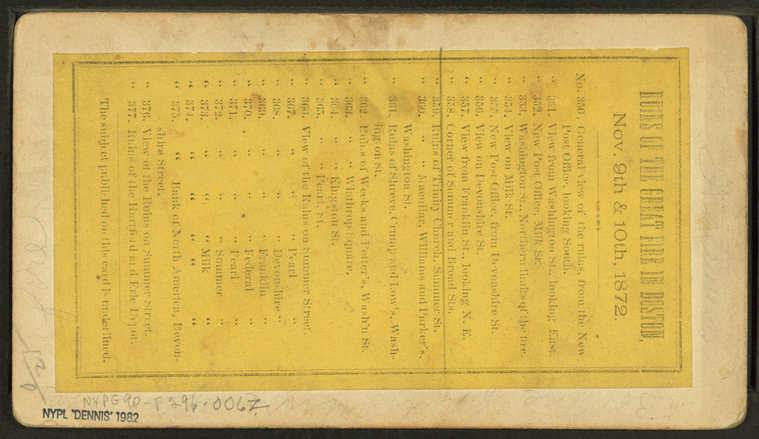 RUINS OF THE GREAT FIRE IN BOSTON,
Nov. 9th & 10th, 1872.
No. 350. General view of the ruins, from the New
Post Office, looking South.
" 351. View from Washington St., looking East.
" 352. New Post Office, Milk St.
" 353. Washington St., Northern limits of the fire.
" 354. View on Milk St.
" 355. New Post Office, from Devonshire St.
" 356. View on Devonshire St.
" 357. View from Franklin St., looking N. E.
" 358. Corner of Summer and Broad Sts.
" 359. Ruins of Trinity Church, Summer St.
" 360. " " Macullar, Williams and Parker's,
Washington St.
" 361. Ruins of Shreve, Crump and Low's, Wash-
ington St.
" 362. Ruins of Weeks and Potter's, Wash'n St.
" 363. " " Winthrop Square.
" 364. " " Kingston St.
" 365. " " Pearl St.
" 366. View of the Ruins on Summer Street.
" 367. " " " " Pearl "
" 368. " " " " Devonshire "
" 369. " " " " Franklin "
" 370. " " " " Federal "
" 371. " " " " Pearl "
" 372. " " " " Summer "
" 373. " " " " Milk "
" 374. " " " " " "
" 375. " " Bank of North America, Devon-
shire Street.
" 376. View of the Ruins on Summer Street.
" 377. Ruins of the Hartford and Erie Depot.
The subject published on this card is underlined.
NYPG90-F296.0067
NYPL "DENNIS" 1982